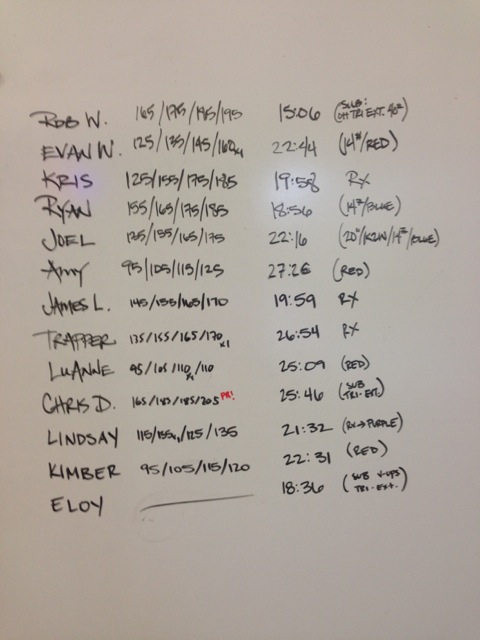 ROB W. 165/175/185/195 15:06 (SUB: OH TRI EXT. 40#)
EVAN W. 125/135/145/160x1 22:44 (14#/RED)
KRIS 125/155/175/185 19:58 RX
RYAN 155/165/175/185 18:56 (14#/BLUE)
JOEL 135/155/165/175 22:16 (20"/K2W/14#/BLUE)
AMY 95/105/115/125 27:26 (RED)
JAMES L. 145/155/165/170 19:59 RX
TRAPPER 135/155/165/170x1 26:54 RX
LUANNE 95/105/110x1/110 25:09 (RED)
CHRIS D. 165/185/185/205 PR! 25:46 (SUB TRI-EXT.)
LINDSAY 115/135x1/125/135 21:32 (RX→PURPLE)
KIMBER 95/105/115/120 22:31 (RED)
ELOY 18:36 (SUB V-UPS TRI-EXT.)